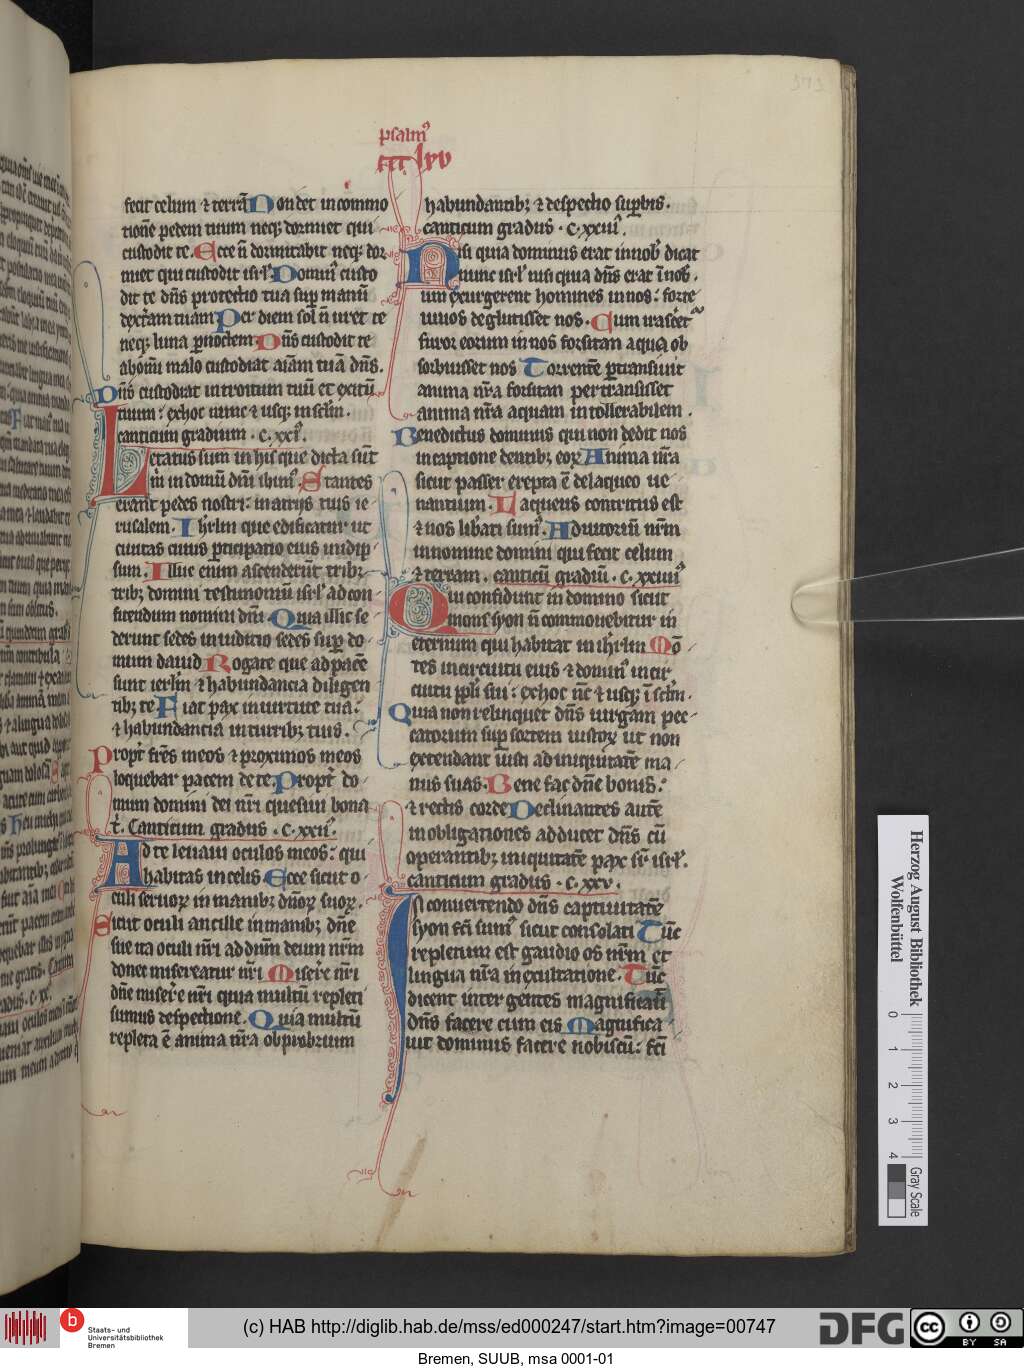 psalm⁹
cxxv
fecit celum ⁊ terrā Non det in commo
tionē pedem tuum neqꝫ dormiet qui
custodit te. Ecce n̄ dormitabit neqꝫ dor
miet qui custodit isrl̓. Domin⁹ custo
dit te dn̄s protectio tua sup manū
dexteram tuam Per diem sol n̄ uret te
neqꝫ luna p noctem Dn̄s custodit te
ab om̄i malo custodiat aīam tuā dn̄s.
Dn̄s custodiat introitum tuū et exitū
tuum: ex hoc nunc ⁊ usqꝫ in sclm̄.
canticum graduum. c.xxi⁹.
Letatus sum in his que dicta sūt
m̄ in domū dn̄i ibim⁹. Stantes
erant pedes nostri: in atrijs tuis ie
rusalem. Ihrlm̄ que edificatur ut
ciuitas cuius pticipatio eius in idip
sum. Illuc enim ascenderūt tribꝫ
tribꝫ domini testimoniū isrl̓ ad con
fitendum nomini dn̄i. Quia illic se
derunt sedes in iuditio sedes sup do
mum dauid Rogate que ad pacē
sunt ierlm̄ ⁊ habundancia diligen
tibꝫ te. Fiat pax in uirtute tua:
⁊ habundancia in turribꝫ tuis.
Propt̓ frēs meos ⁊ proximos meos
loquebar pacem de te. Propt̓ do
mum domini dei nr̄i quesiui bona
t̓. Canticum gradus. c.xxii⁹.
Ad te leuaui oculos meos: qui
habitas in celis. Ecce sicut o
culi seruoꝝ in manibꝫ dn̄oꝝ suoꝝ.
Sicut oculi ancille in manibꝫ dn̄e
sue ita oculi nr̄i ad dnm̄ deum nrm̄
donec misereatur nr̄i Miserere nr̄i
dn̄e miserere nr̄i quia multū repleti
sumus despectione. Quia multū
repleta ē anima nr̄a obprobrium
habundantibꝫ ⁊ despectio supbis.
canticum gradus. c.xxiii⁹.
Nisi quia dominus erat in nob̄ dicat
nunc isrl̓ nisi quia dn̄s erat ī nob̄.
um exurgerent homines in nos: forte
uiuos deglutisset nos. Cum irascer̄et
furor eorum in nos forsitan aqua ob
sorbuisset nos Torrentē ptransiuit
anima nr̄a forsitan pertransisset
anima nr̄a aquam intollerabilem.
Benedictus dominus qui non dedit nos
in captione dentibꝫ eoꝝ Anima nr̄a
sicut passer erepta ē de laqueo ue
nantium. Laqueus contritus est
⁊ nos lib̓ati sum⁹. Adiutoriū nrm̄
in nomine domini qui fecit celum
⁊ terram. canticū graduū. c.xxiiii⁹
Qui confidunt in domino sicut
mons syon n̄ commouebitur in
eternum qui habitat in ihrlm̄ Mō
tes in circuitu eius ⁊ domin⁹ in cir
cuitu ppl̓i sui: ex hoc nc̄ ⁊ usqꝫ ī sclm̄.
Quia non relinquet dn̄s uirgam pec
catorum sup sortem iustoꝝ ut non
extendant iusti ad iniquitatē ma
nus suas. Bene fac dn̄e bonis:
⁊ rectis corde Declinantes autē
in obligationes adducet dn̄s cū
operantibꝫ iniquitatē pax sr̄ isrl̓.
canticum gradus. c.xxv.
In conuertendo dn̄s captiuitatē
syon fc̄i sum⁹ sicut consolati Tūc
repletum est gaudio os nrm̄ et
lingua nr̄a in exultatione. Tūc
dicent inter gentes magnificauit
dn̄s facere cum eis Magnifica
uit dominus facere nobiscū: fc̄i
Herzog August Bibliothek
Wolfenbüttel
0 1 2 3 4
Gray Scale
b Staats- und
Universitätsbibliothek
Bremen
(c) HAB http://diglib.hab.de/mss/ed000247/start.htm?image=00747
DFG
cc BY SA
Bremen, SUUB, msa 0001-01